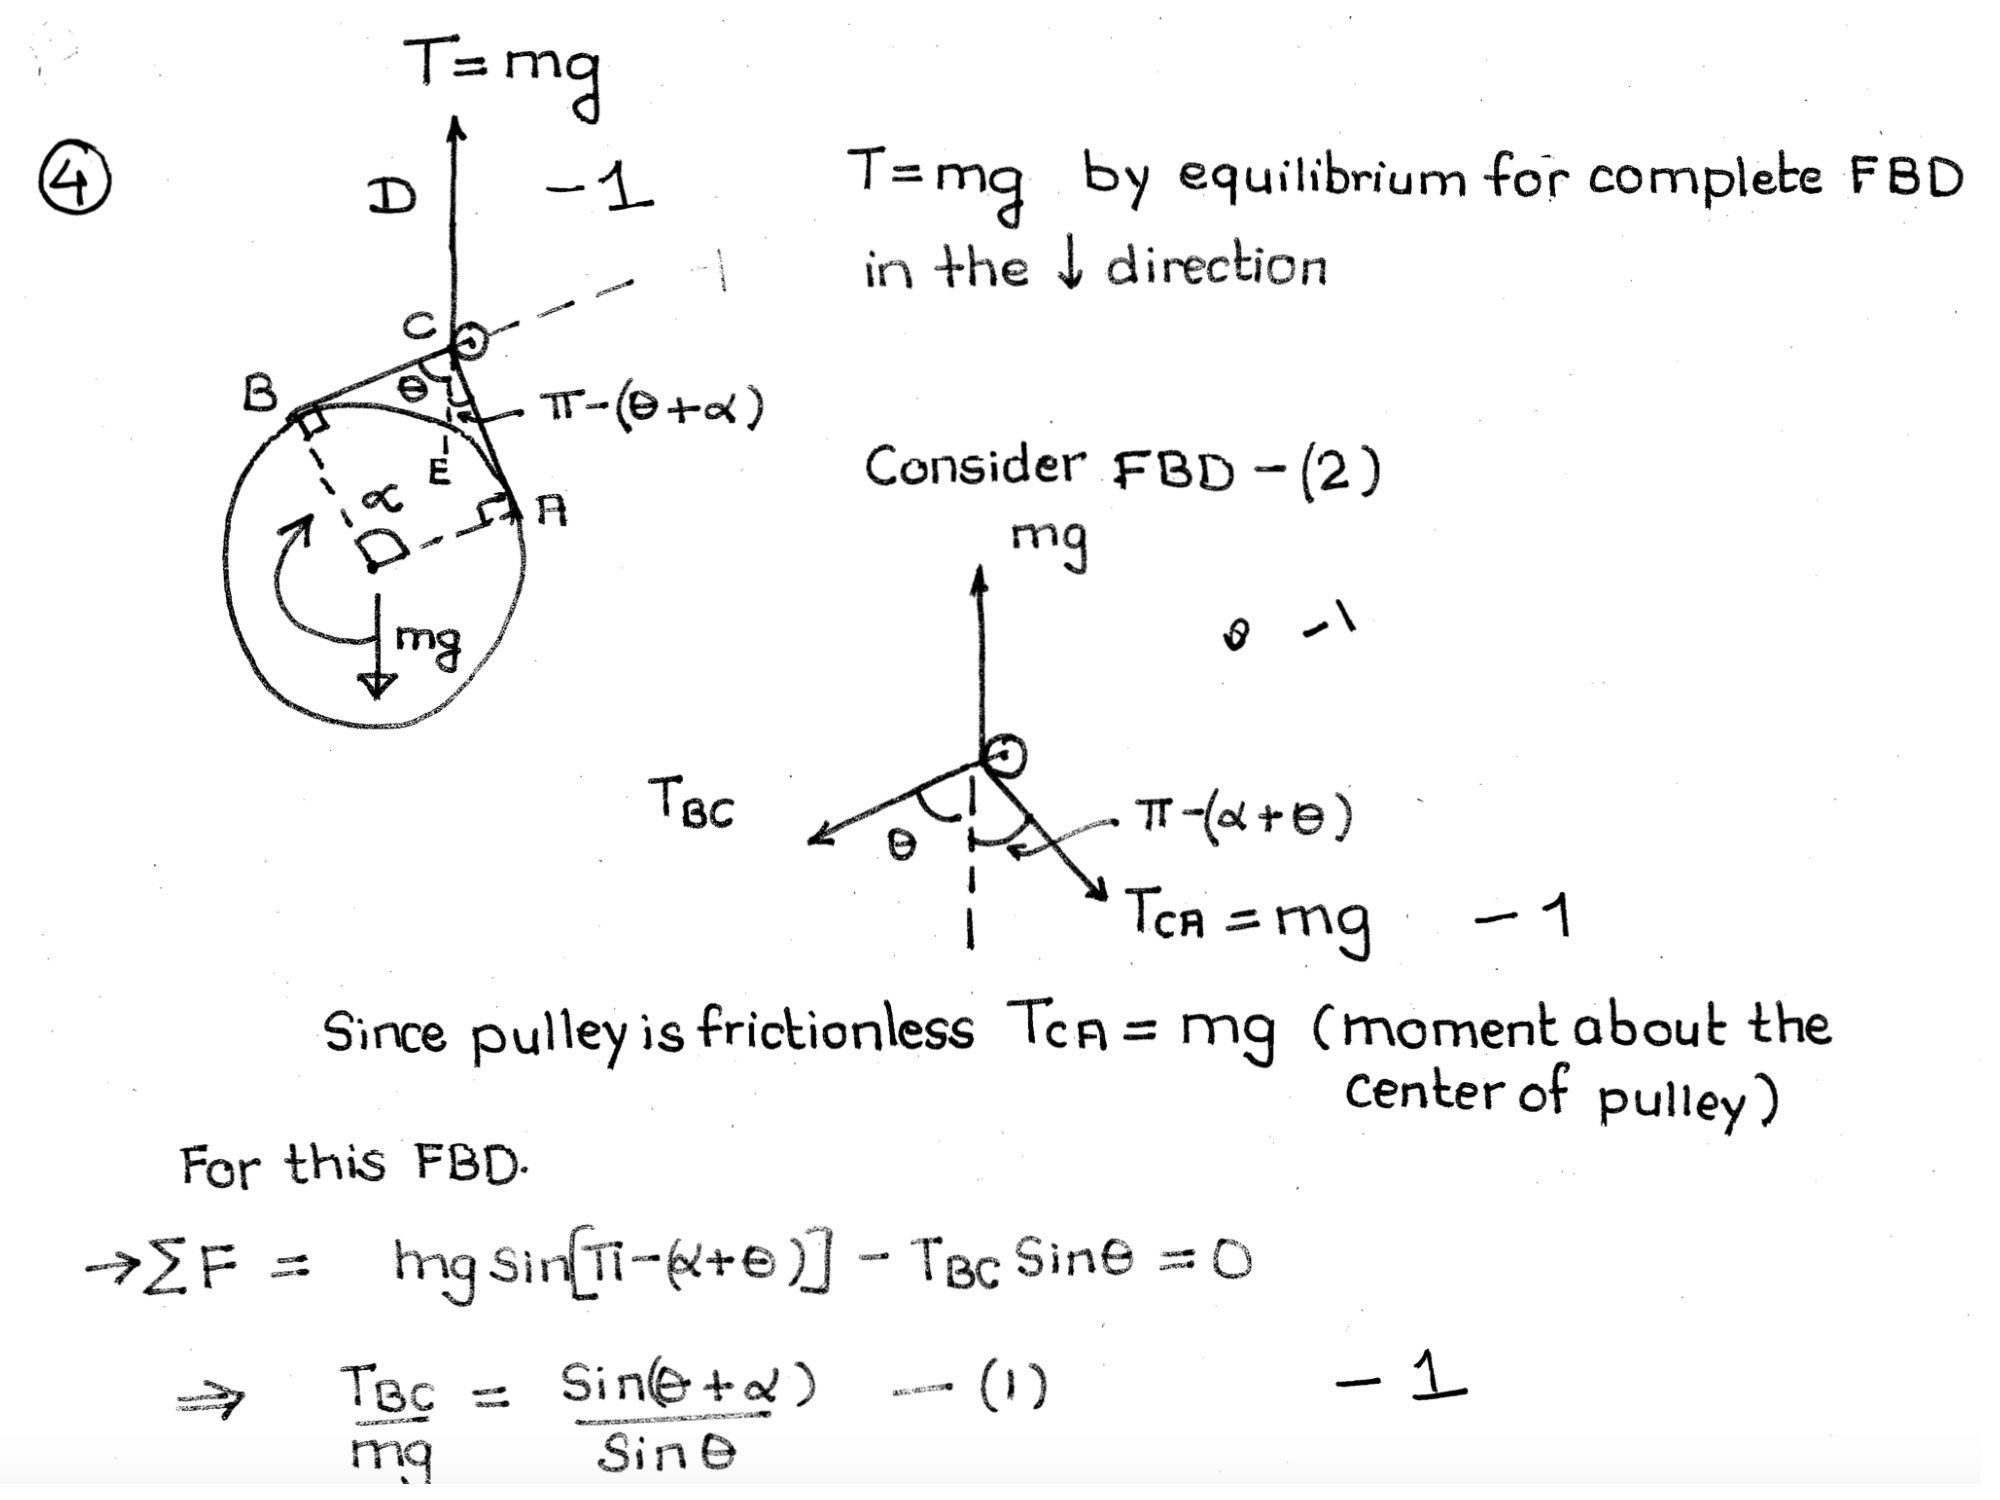 T = mg
④
D
-1
T = mg by equilibrium for complete FBD
in the ↓ direction
-1
C
B
θ
π-(θ+α)
E
α
A
mg
Consider FBD - (2)
mg
θ -1
T_BC
θ
π-(α+θ)
T_CA = mg -1
Since pulley is frictionless T_CA = mg (moment about the
center of pulley)
For this FBD.
→ΣF = mg sin[π-(α+θ)] - T_BC Sinθ = 0
⇒ T_BC/mg = Sin(θ+α)/Sinθ - (1) -1